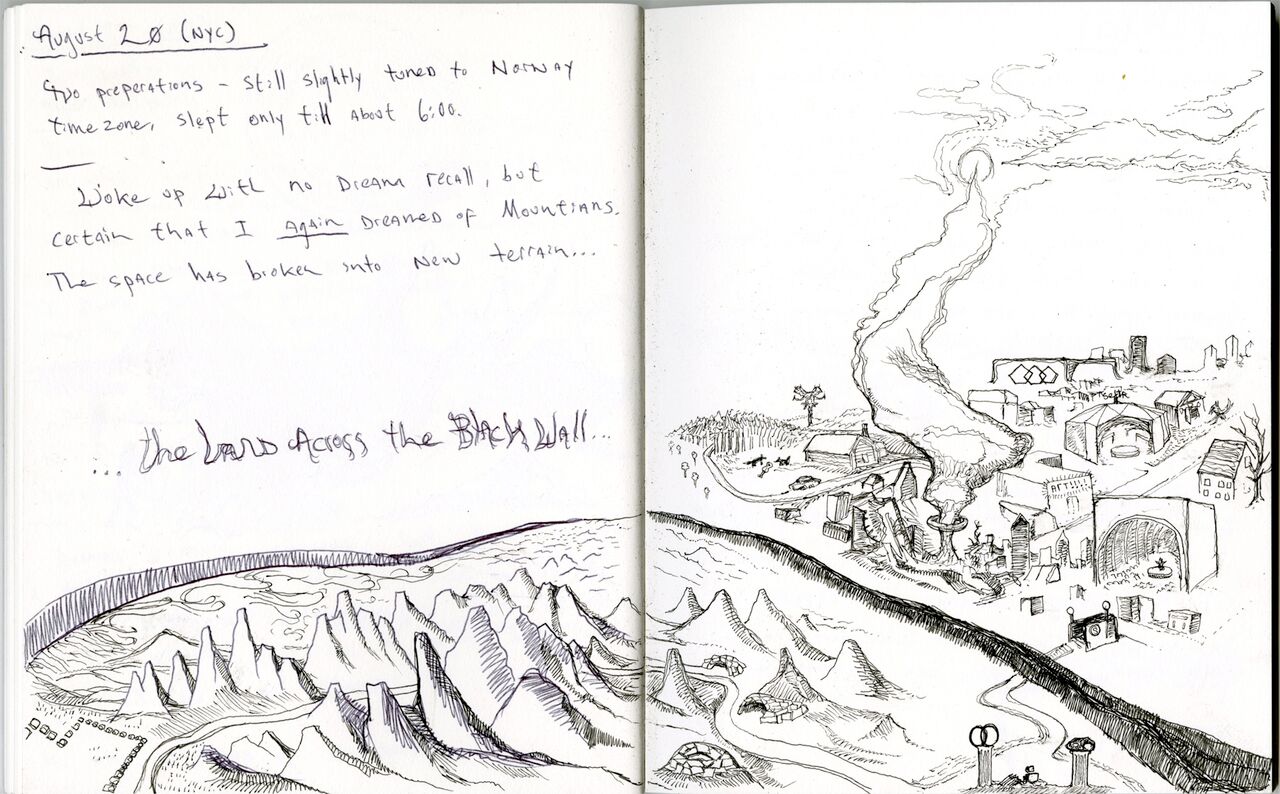 August 20 (NYC)
Two preperations - still slightly tuned to Norway
time zone, slept only till about 6:00.
Woke up with no Dream recall, but
certain that I Again Dreamed of Mountians.
The space has broken into new terrain...
...the Land Across the Black Wall...
ART